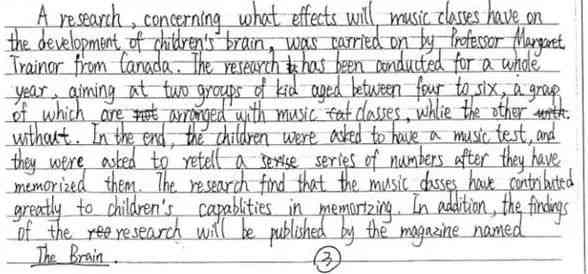 A research, concerning what effects will music classes have on
the development of children's brain, was carried on by Professor Margaret
Trainor from Canada. The research has been conducted for a whole
year, aiming at two groups of kid aged between four to six, a group
of which are arranged with music classes, whlie the other
without. In the end, the children were asked to have a music test, and
they were asked to retell a series of numbers after they have
memorized them. The research find that the music classes have contributed
greatly to children's capablities in memorizing. In addition, the findings
of the research will be published by the magazine named
The Brain.
③